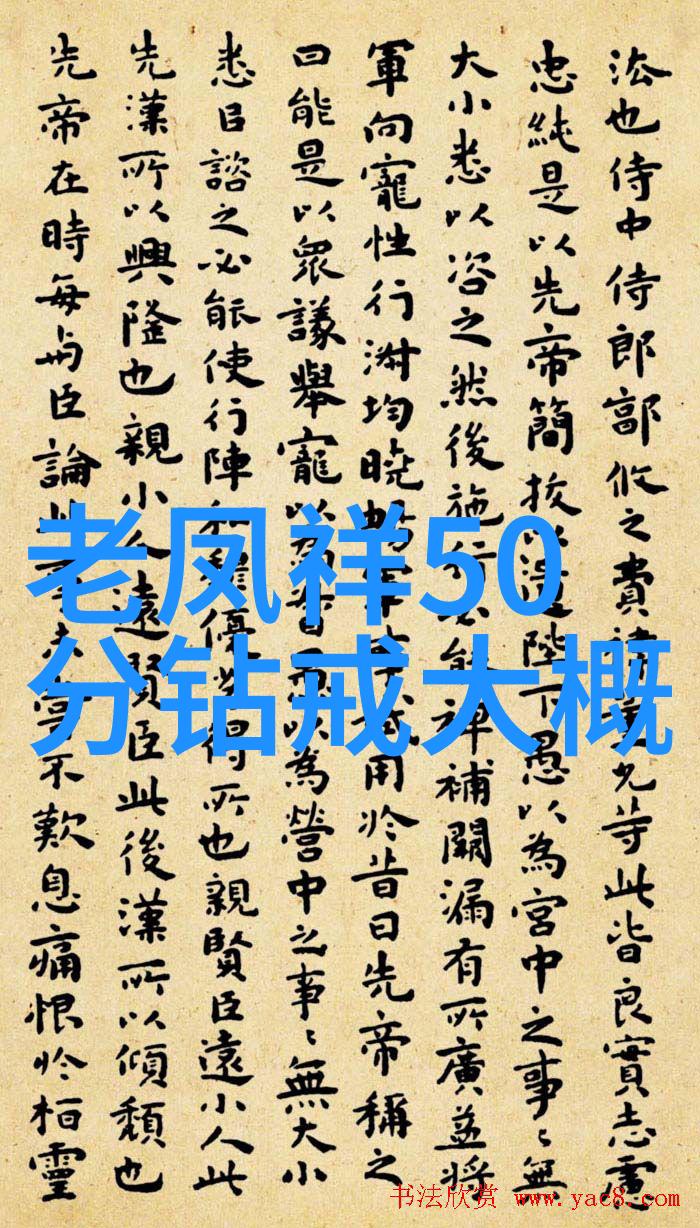 法也侍中侍郎郭攸之費禕董允等此皆良實志慮
忠純是以先帝簡拔以遺陛下愚以為宮中之事〻無
大小悉以咨之然後施行必能裨補闕漏有所廣益將
軍向寵性行淑均曉暢軍事試用於昔日先帝稱之
曰能是以眾議舉寵以為督愚以為營中之事〻無大小
悉以諮之必能使行陣和穆優劣得所也親賢臣遠小人此
先漢所以興隆也親小人遠賢臣此後漢所以傾頹也
先帝在時每與臣論此事未嘗不歎息痛恨於桓靈
老凤祥50
分钻戒大概
书法欣赏 www.yac8.com